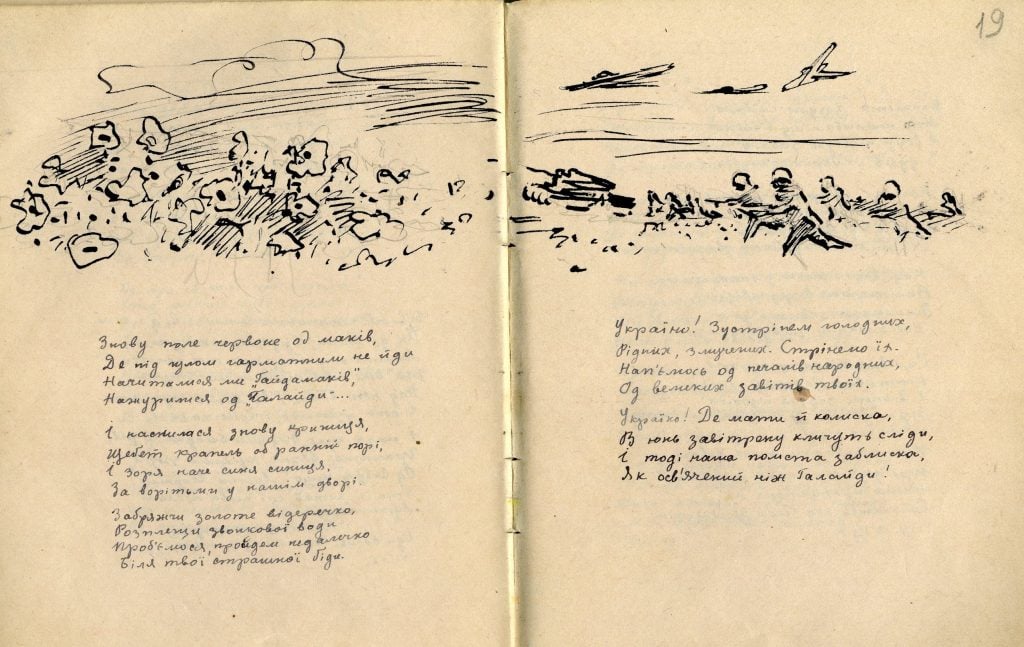 19
Знову поле червоне од маків,
Де під гулом гарматним не йди
Начиталися ми „Гайдамаків",
Нажурилися од „Галайди"...
І наснилася знову криниця,
Щебет крапель об ранній порі,
І зоря наче синя синиця,
За ворітьми у нашім дворі.
Забряжчи золоте відеречко,
Розплещи звонкової води
Проб'ємося, пройдем недалечко
Біля твої страшної біди.
Україно! Зустрінем голодних,
Рідних, змучених. Стрінемо їх.
Нап'ємось од печалів народних,
Од великих завітів твоїх.
Україно! Де мати й колиска,
В юнь завітрену кличуть сліди,
І тоді наша помста заблиска,
Як осв'ячений ніж Галайди!